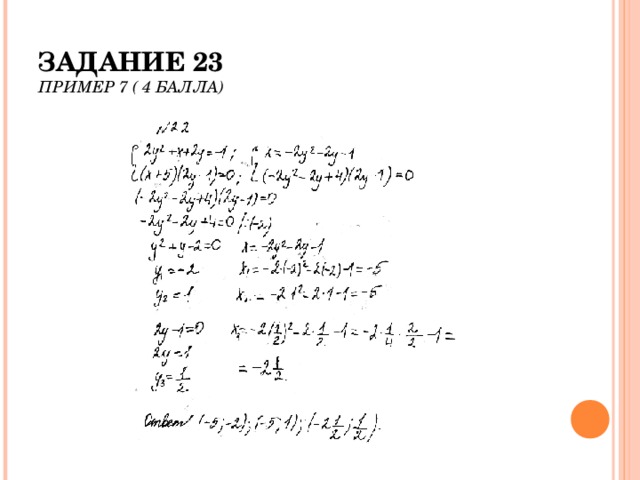 ЗАДАНИЕ 23
ПРИМЕР 7 ( 4 БАЛЛА)
№22
{ 2y²+x+2y=-1; { x=-2y²-2y-1
{ (x+5)(2y-1)=0; { (-2y²-2y+4)(2y-1)=0
(-2y²-2y+4)(2y-1)=0
-2y²-2y+4=0 /:(-2)
y²+y-2=0 x=-2y²-2y-1
y₁=-2 x₁=-2·(-2)²-2(-2)-1=-5
y₂=1 x₂=-2·1²-2·1-1=-5
2y-1=0 x₃=-2(1/2)²-2·1/2-1=-2·1/4·2/2-1=
2y=1
y₃=1/2 =-2 1/2
Ответ (-5;-2);(-5;1);(-2 1/2;1/2).